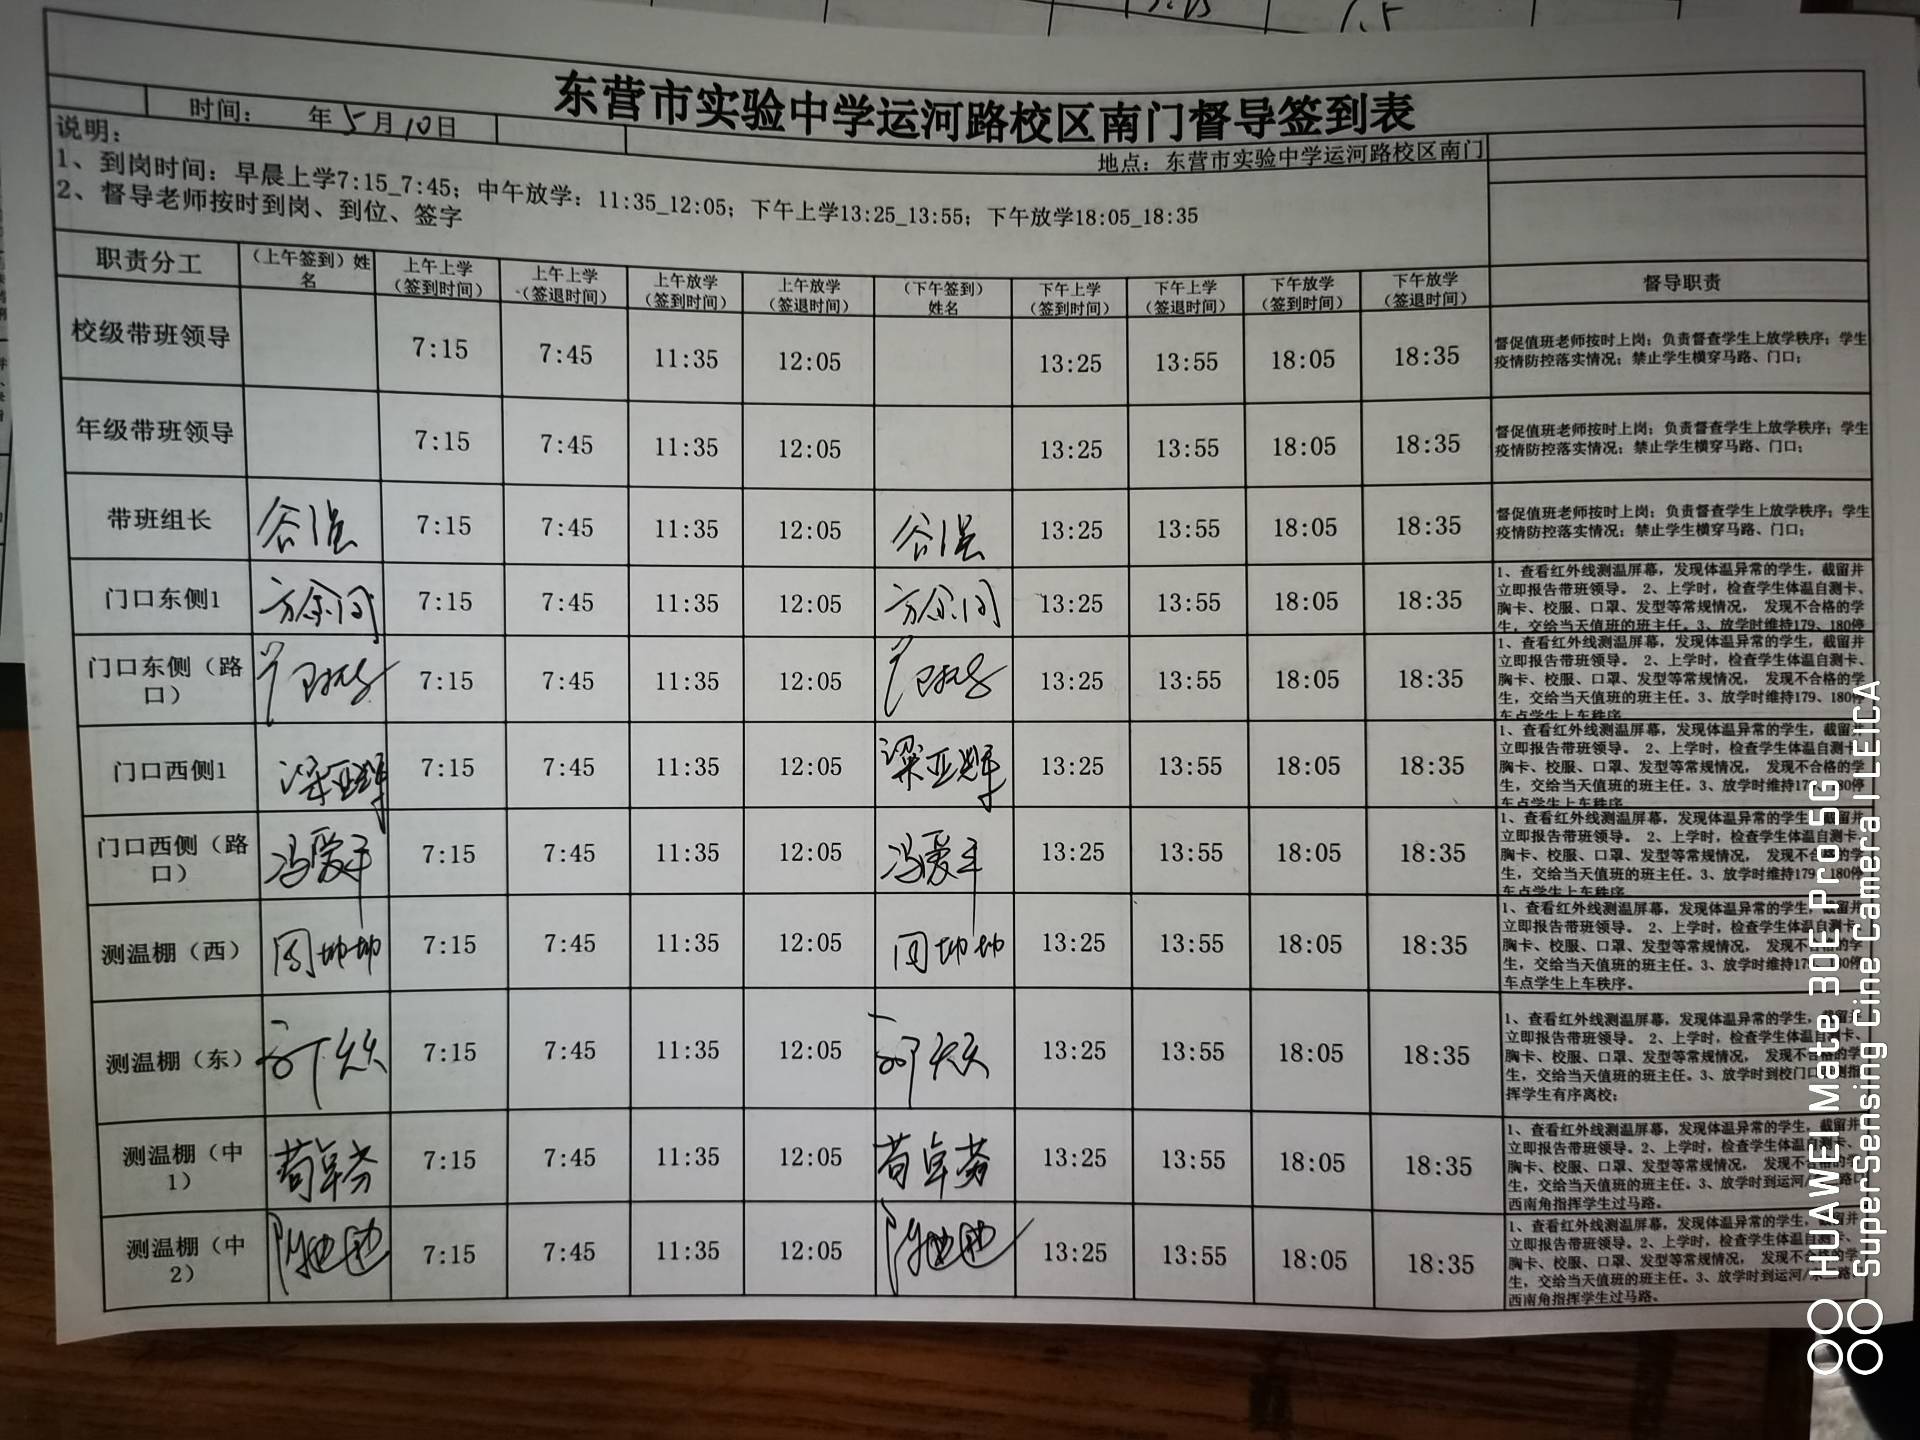 东营市实验中学运河路校区南门督导签到表
时间： 年5月10日
地点：东营市实验中学运河路校区南门
说明：
1、到岗时间：早晨上学7:15_7:45；中午放学：11:35_12:05；下午上学13:25_13:55；下午放学18:05_18:35
2、督导老师按时到岗、到位、签字
职责分工 （上午签到）姓名 上午上学（签到时间） 上午上学（签退时间） 上午放学（签到时间） 上午放学（签退时间） （下午签到）姓名 下午上学（签到时间） 下午上学（签退时间） 下午放学（签到时间） 下午放学（签退时间） 督导职责
校级带班领导 7:15 7:45 11:35 12:05 13:25 13:55 18:05 18:35 督促值班老师按时上岗；负责督查学生上放学秩序；学生
疫情防控落实情况；禁止学生横穿马路、门口；
年级带班领导 7:15 7:45 11:35 12:05 13:25 13:55 18:05 18:35 督促值班老师按时上岗；负责督查学生上放学秩序；学生
疫情防控落实情况；禁止学生横穿马路、门口；
带班组长 谷强 7:15 7:45 11:35 12:05 谷强 13:25 13:55 18:05 18:35 督促值班老师按时上岗；负责督查学生上放学秩序；学生
疫情防控落实情况；禁止学生横穿马路、门口；
门口东侧1 7:15 7:45 11:35 12:05 13:25 13:55 18:05 18:35 1、查看红外线测温屏幕，发现体温异常的学生，截留并
立即报告带班领导。 2、上学时，检查学生体温自测卡、
胸卡、校服、口罩、发型等常规情况， 发现不合格的学
生，交给当天值班的班主任。3、放学时维持179、180停
门口东侧（路口） 7:15 7:45 11:35 12:05 13:25 13:55 18:05 18:35 1、查看红外线测温屏幕，发现体温异常的学生，截留并
立即报告带班领导。 2、上学时，检查学生体温自测卡、
胸卡、校服、口罩、发型等常规情况， 发现不合格的学
生，交给当天值班的班主任。3、放学时维持179、180停
车点学生上车秩序
门口西侧1 梁亚辉 7:15 7:45 11:35 12:05 梁亚辉 13:25 13:55 18:05 18:35 1、查看红外线测温屏幕，发现体温异常的学生，截留并
立即报告带班领导。 2、上学时，检查学生体温自测卡、
胸卡、校服、口罩、发型等常规情况， 发现不合格的学
生，交给当天值班的班主任。3、放学时维持179、180停
车点学生上车秩序
门口西侧（路口） 冯爱平 7:15 7:45 11:35 12:05 冯爱平 13:25 13:55 18:05 18:35 1、查看红外线测温屏幕，发现体温异常的学生，截留并
立即报告带班领导。 2、上学时，检查学生体温自测卡、
胸卡、校服、口罩、发型等常规情况， 发现不合格的学
生，交给当天值班的班主任。3、放学时维持179、180停
车点学生上车秩序
测温棚（西） 周坤坤 7:15 7:45 11:35 12:05 周坤坤 13:25 13:55 18:05 18:35 1、查看红外线测温屏幕，发现体温异常的学生，截留并
立即报告带班领导。 2、上学时，检查学生体温自测卡、
胸卡、校服、口罩、发型等常规情况， 发现不合格的学
生，交给当天值班的班主任。3、放学时维持179、180停
车点学生上车秩序。
测温棚（东） 7:15 7:45 11:35 12:05 13:25 13:55 18:05 18:35 1、查看红外线测温屏幕，发现体温异常的学生，截留并
立即报告带班领导。 2、上学时，检查学生体温自测卡、
胸卡、校服、口罩、发型等常规情况， 发现不合格的学
生，交给当天值班的班主任。3、放学时到校门口 侧指
挥学生有序离校；
测温棚（中1） 苟卓芬 7:15 7:45 11:35 12:05 苟卓芬 13:25 13:55 18:05 18:35 1、查看红外线测温屏幕，发现体温异常的学生，截留并
立即报告带班领导。2、上学时，检查学生体温自测卡、
胸卡、校服、口罩、发型等常规情况， 发现不合格的学
生，交给当天值班的班主任。3、放学时到运河 路口
西南角指挥学生过马路。
测温棚（中2） 7:15 7:45 11:35 12:05 13:25 13:55 18:05 18:35 1、查看红外线测温屏幕，发现体温异常的学生，截留并
立即报告带班领导。2、上学时，检查学生体温自测卡、
胸卡、校服、口罩、发型等常规情况， 发现不合格的学
生，交给当天值班的班主任。3、放学时到运河 路
西南角指挥学生过马路。
HUAWEI Mate 30E Pro 5G
SuperSensing Cine Camera | LEICA